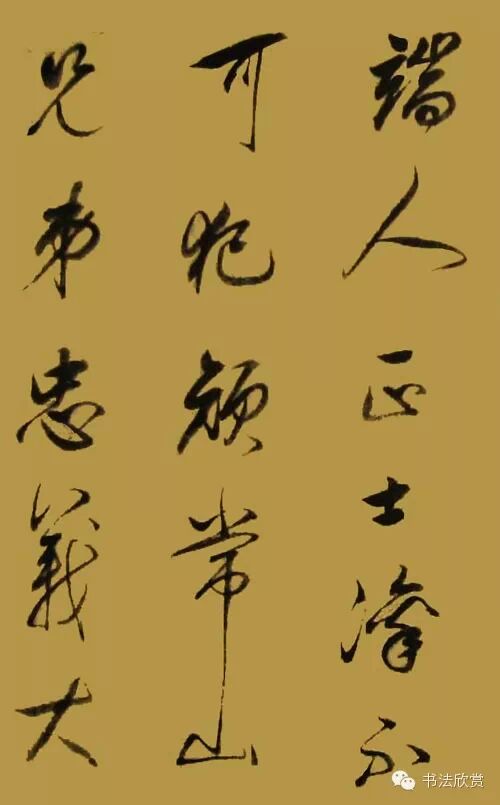 端人正士凜不
可犯顏常山
兄弟忠義大
书法欣赏